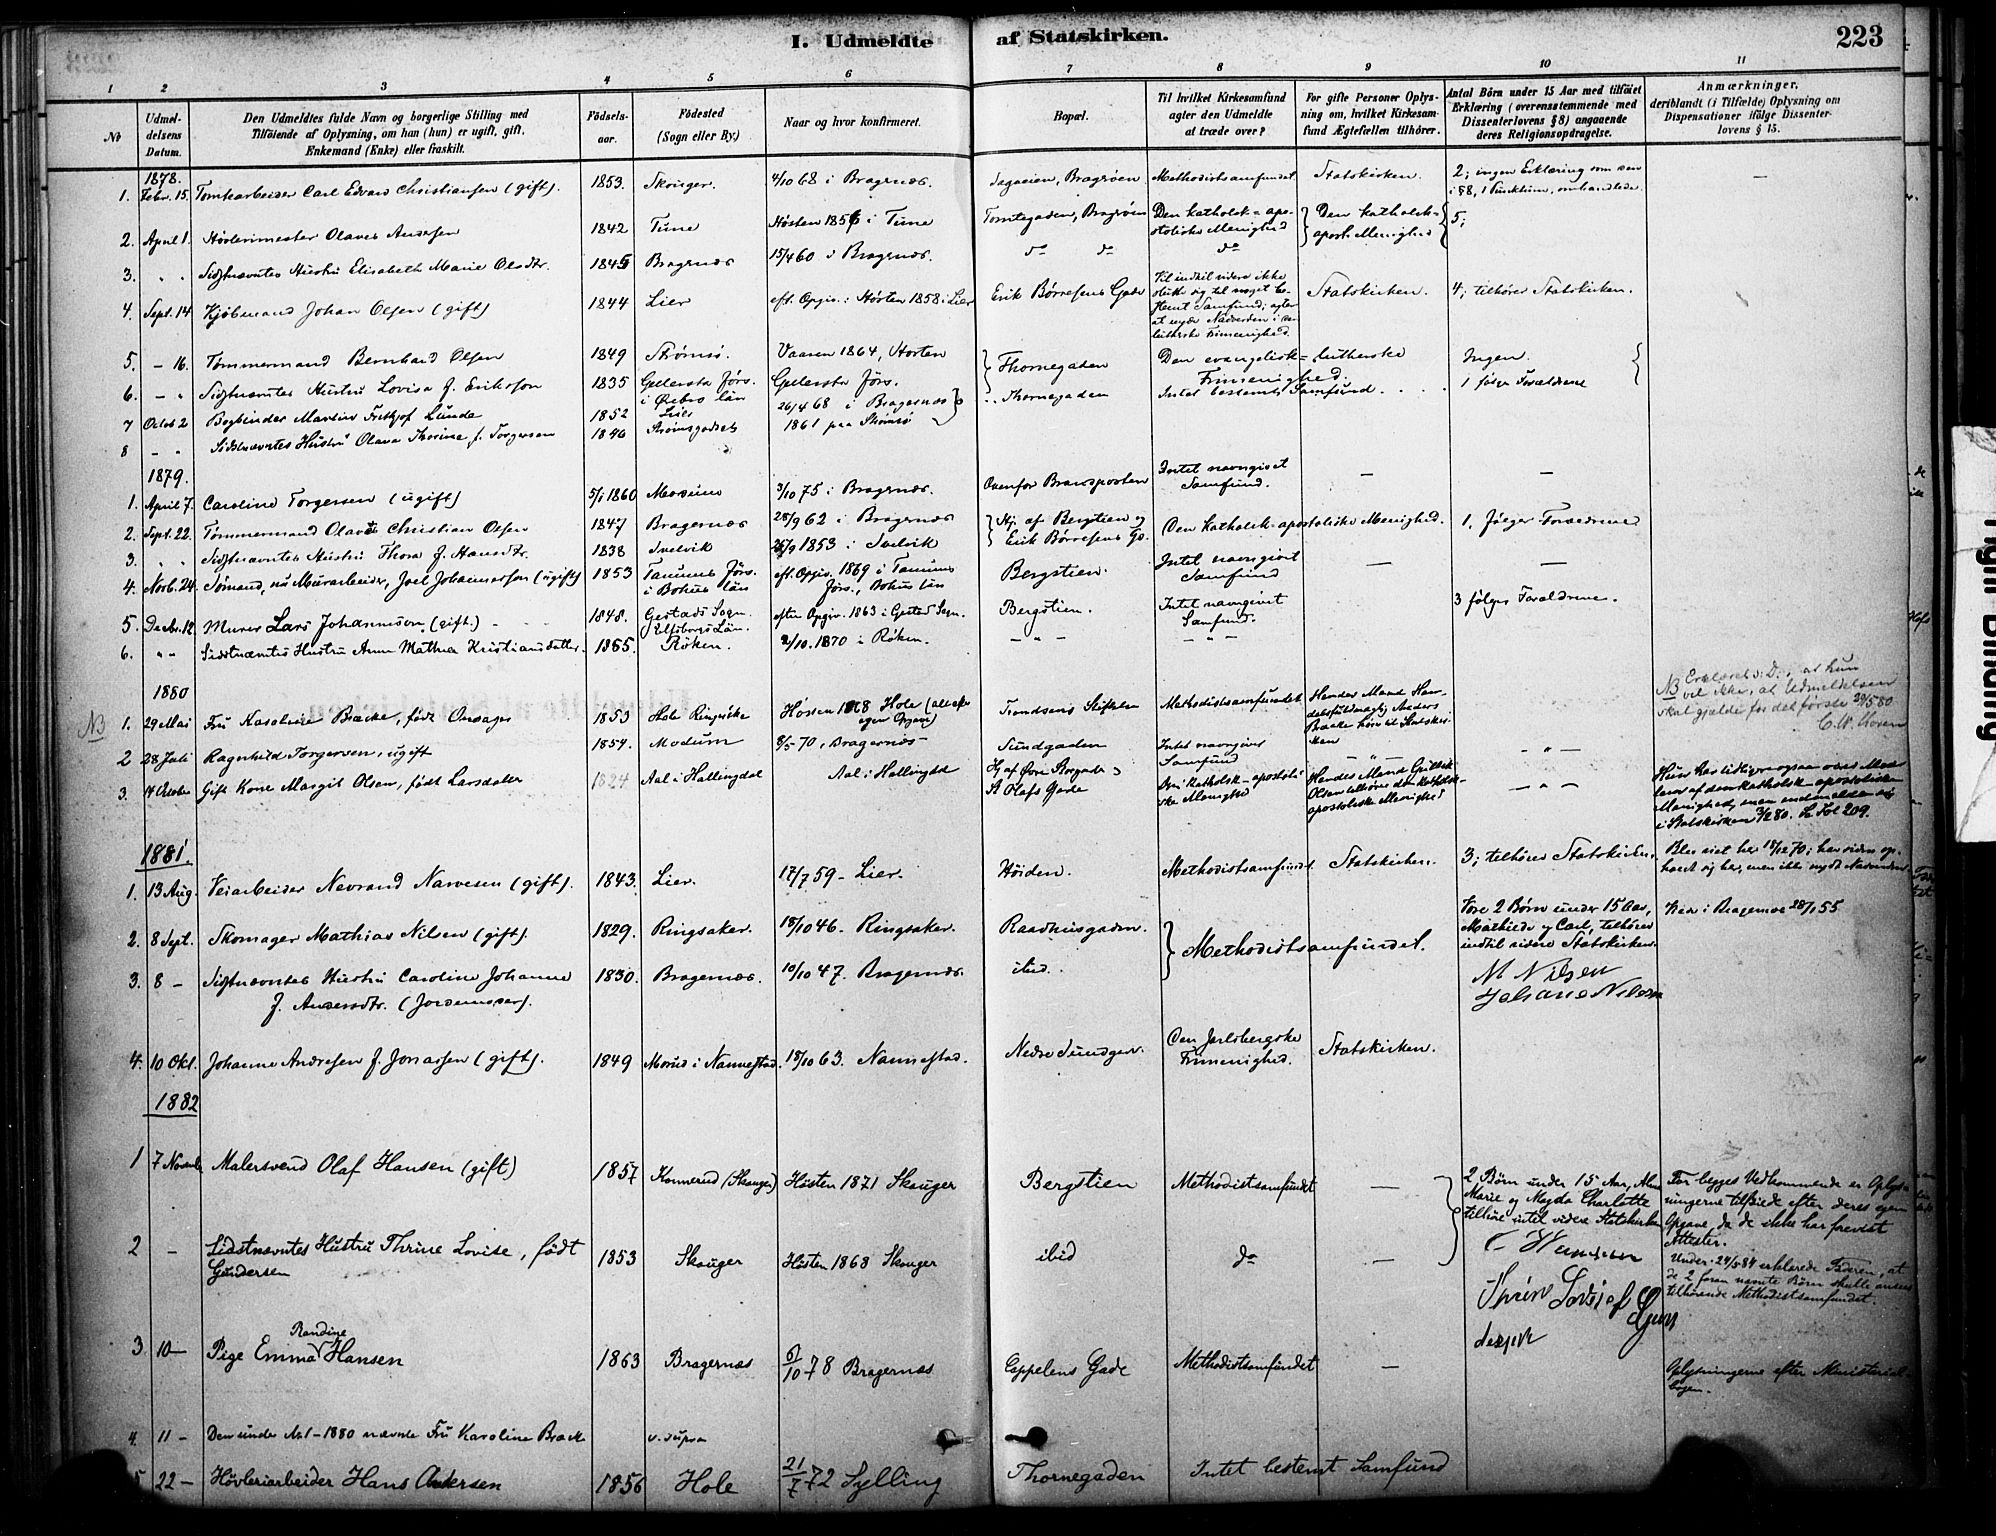 I. Udmeldte af Statskirken.
223
1 2 3 4 5 6 7 8 9 10 11
No
Udmeldelsens Datum.
Den Udmeldtes fulde Navn og borgerlige Stilling med
Tilføiende af Oplysning, om han (hun) er ugift, gift,
Enkemand (Enke) eller fraskilt.
Fødselsaar.
Fødested
(Sogn eller By.)
Naar og hvor konfirmeret.
Bopæl.
Til hvilket Kirkesamfund
agter den Udmeldte
at træde over?
For gifte Personer Oplys-
ning om, hvilket Kirkesam-
fund Ægtefællen tilhører.
Antal Børn under 15 Aar med tilføiet
Erklæring (overensstemmende med
Dissenterlovens § 8) angaaende
deres Religionsopdragelse.
Anmærkninger,
deriblandt (i Tilfælde) Oplysning om
Dispensationer ifølge Dissenter-
lovens § 15.
1878.
1. Febr. 15. Tomtearbeider Carl Edvard Christiansen (gift). 1853. Skouger. 4/10 68 i Bragernæs. Bragerøen Methodistsamfundet Statskirken. 2; ingen Erklæring om den i § 8, 1 Punktum, omhandlede. —
2. April 1. Høvlerimester Olaves Andersen 1842 Tune Høsten 1856 i Tune Tomtegaden, Bragerøen Den katholsk-apostoliske Menighed Den katholsk-apost. Menighed 5;
3. " " Sidstnævntes Hustru Elisabeth Marie Olsdtr. 1845 Bragernæs 15/4 60 i Bragernæs. do do do
4. Sept. 14 Kjøbmand Johan Olsen (gift) 1844 Lier eft. Opgiv.: Høsten 1858 i Lier Erik Børresens Gade Vil indtil videre ikke slutte sig til noget bestemt Samfund; agter at nyde Nadverden i den lutherske Frimenighed. Statskirken. 4; tilhører Statskirken.
5. — 16. Tømmermand Bernhard Olsen 1849 Strømsø. Vaaren 1864, Horten Thornegaden Den evangelisk-lutherske Frimenighed. Ingen.
6. — " Sidstnævntes Hustru Lovisa f. Erikson 1835 Gellersta Förs. i Örebro län Gellersta Förs.
7 Octob 2 Bogbinder Martin Fritjof Lunde 1852 Lier 26/4 68 i Bragernæs Thornegaden Intet bestemt Samfund. 1 følge Forældrene
8 — " Sidstnævntes Hustru Olava Thorine f. Torgersen 1846 Strømsgodset 1861 paa Strømsø
1879.
1. April 7. Caroline Torgersen (ugift) 5/1 1860 Modum 3/10 75 i Bragernæs. Ovenfor Brandposten Intet navngivet Samfund. — —
2. Sept. 22. Tømmermand Olaves Christian Olsen 1847 Bragernæs 28/9 62 i Bragernæs Hj. af Bergstien og Erik Børresens Gd. Den katholsk-apostoliske Menighed. 1, følger Forældrene
3. " " Sidstnævntes Hustru Thora f. Hansdtr. 1838 Svelvik 25/9 1853 i Svelvik
4. Novb. 24. Sømand, nu Murarbeider, Joel Johannesson (ugift) 1853 Tanums Förs. i Bohus län eft. Opgiv. 1869 i Tanums Förs., Bohus län Bergstien. Intet navngivet Samfund — —
5. Decbr. 12. Murer Lars Johannison. (gift.) 1848. Gestads Sogn. Elfsborgs Län. efter Opgiv. 1863 i Gestad Sogn. Bergstien. Intet navngivet Samfund. 3 følger Forældrene.
6. " " Sidstnævntes Hustru Anne Mathea Kristiansdatter. 1855. Røken. 2/10. 1870 i Røken. — " — — " —
1880
NB 1. 29 Mai Fru Karoline Bracke, født Onsager 1853 Hole Ringerike Høsten 1868 Hole (alt efter egen Opgave) Trondsens Stiftelse Methodistsamfundet Hendes Mand Handelsfuldmægtig Anders Braake hører til Statskirken NB Erklæret s. D., at hun vil ikke, at Udmeldelsen skal gjælde for det første 29/5 80
2 28 Juli Ragnhild Torgersen, ugift 1854. Modum 8/5 70, Bragernæs Sundgaden Intet navngivet Samfund — " — — " —
3. 14 Octobr Gift Kone Margit Olsen, født Larsdatter 1824 Aal i Hallingdal Aal i Hallingdal Hj af Øvre Storgade & St Olafs Gade Den katholsk-apostoliske Menighed Hendes Mand Olsen tilhører den katholsk-apostoliske Menighed — " — Hun har tidligere ogsaa været Medlem af den katholsk-apostoliske Menighed, men indmeldte sig i Statskirken 3/2 80. Se Fol 209.
1881.
1. 13 Aug. Veiarbeider Nevrand Narvesen (gift). 1843. Lier. 17/7 59 - Lier. Høiden. Methodistsamfundet. Statskirken. 3; tilhører Statskirken. Blev viet her 18/12 70; har siden opholdt sig her, men ikke nydt Nadverden.
2. 8 Sept. Skomager Mathias Nilsen (gift). 1829. Ringsaker. 18/10 46. Ringsaker. Raadhusgaden. Methodistsamfundet. Vore 2 Børn under 15 Aar, Mathilde og Carl, tilhører indtil videre Statskirken. Viede i Bragernæs 28/1 55
3. 8 — Sidstnævntes Hustru Caroline Johanne f. Andersdtr. (Jordemoder). 1830. Bragernæs. 10/10 47. Bragernæs. ibid.
M Nilsen
Johane Nilsen
4. 10 Okt. Johanne Andresen f. Jonassen (gift). 1849 Morud i Nannestad. 18/10 63. Nannestad. Nedre Sundgd. Den Jarlsbergske Frimenighed. Statskirken.
1882
1 7 Novemb Malersvend Olaf Hansen (gift) 1857 Konnerud (Skouger) Høsten 1871 Skouger Bergstien Methodistsamfundet — 2 Børn under 15 Aar, Alma Marie og Magda Charlotte tilhøre intil videre Statskirken For begges Vedkommende er Oplysningerne tilføiede efter deres egen Opgave, da de ikke har frevist Attester.
2 — Sidstnævntes Hustru Thrine Lovise, født Gundersen 1853 Skouger Høsten 1868 Skouger ibid do — Under 24/5 84 erklærede Faderen, at de 2 foran nævnte Børn skulle ansees tilhørende Methodistsamfundet.
3 10 — Pige Emma Randine Hansen 1863 Bragernæs 6/10 78 Bragernæs Cappelens Gade Methodistsamfundet — Oplysningerne efter Ministerialbogen.
4. 11 — Den under No 1 - 1880 nævnte Fru Karoline Bracke v. supra
5 22 — Høvleriarbeider Hans Andersen 1856 Hole 21/7 72 Sylling Thornegaden Intet bestemt Samfund